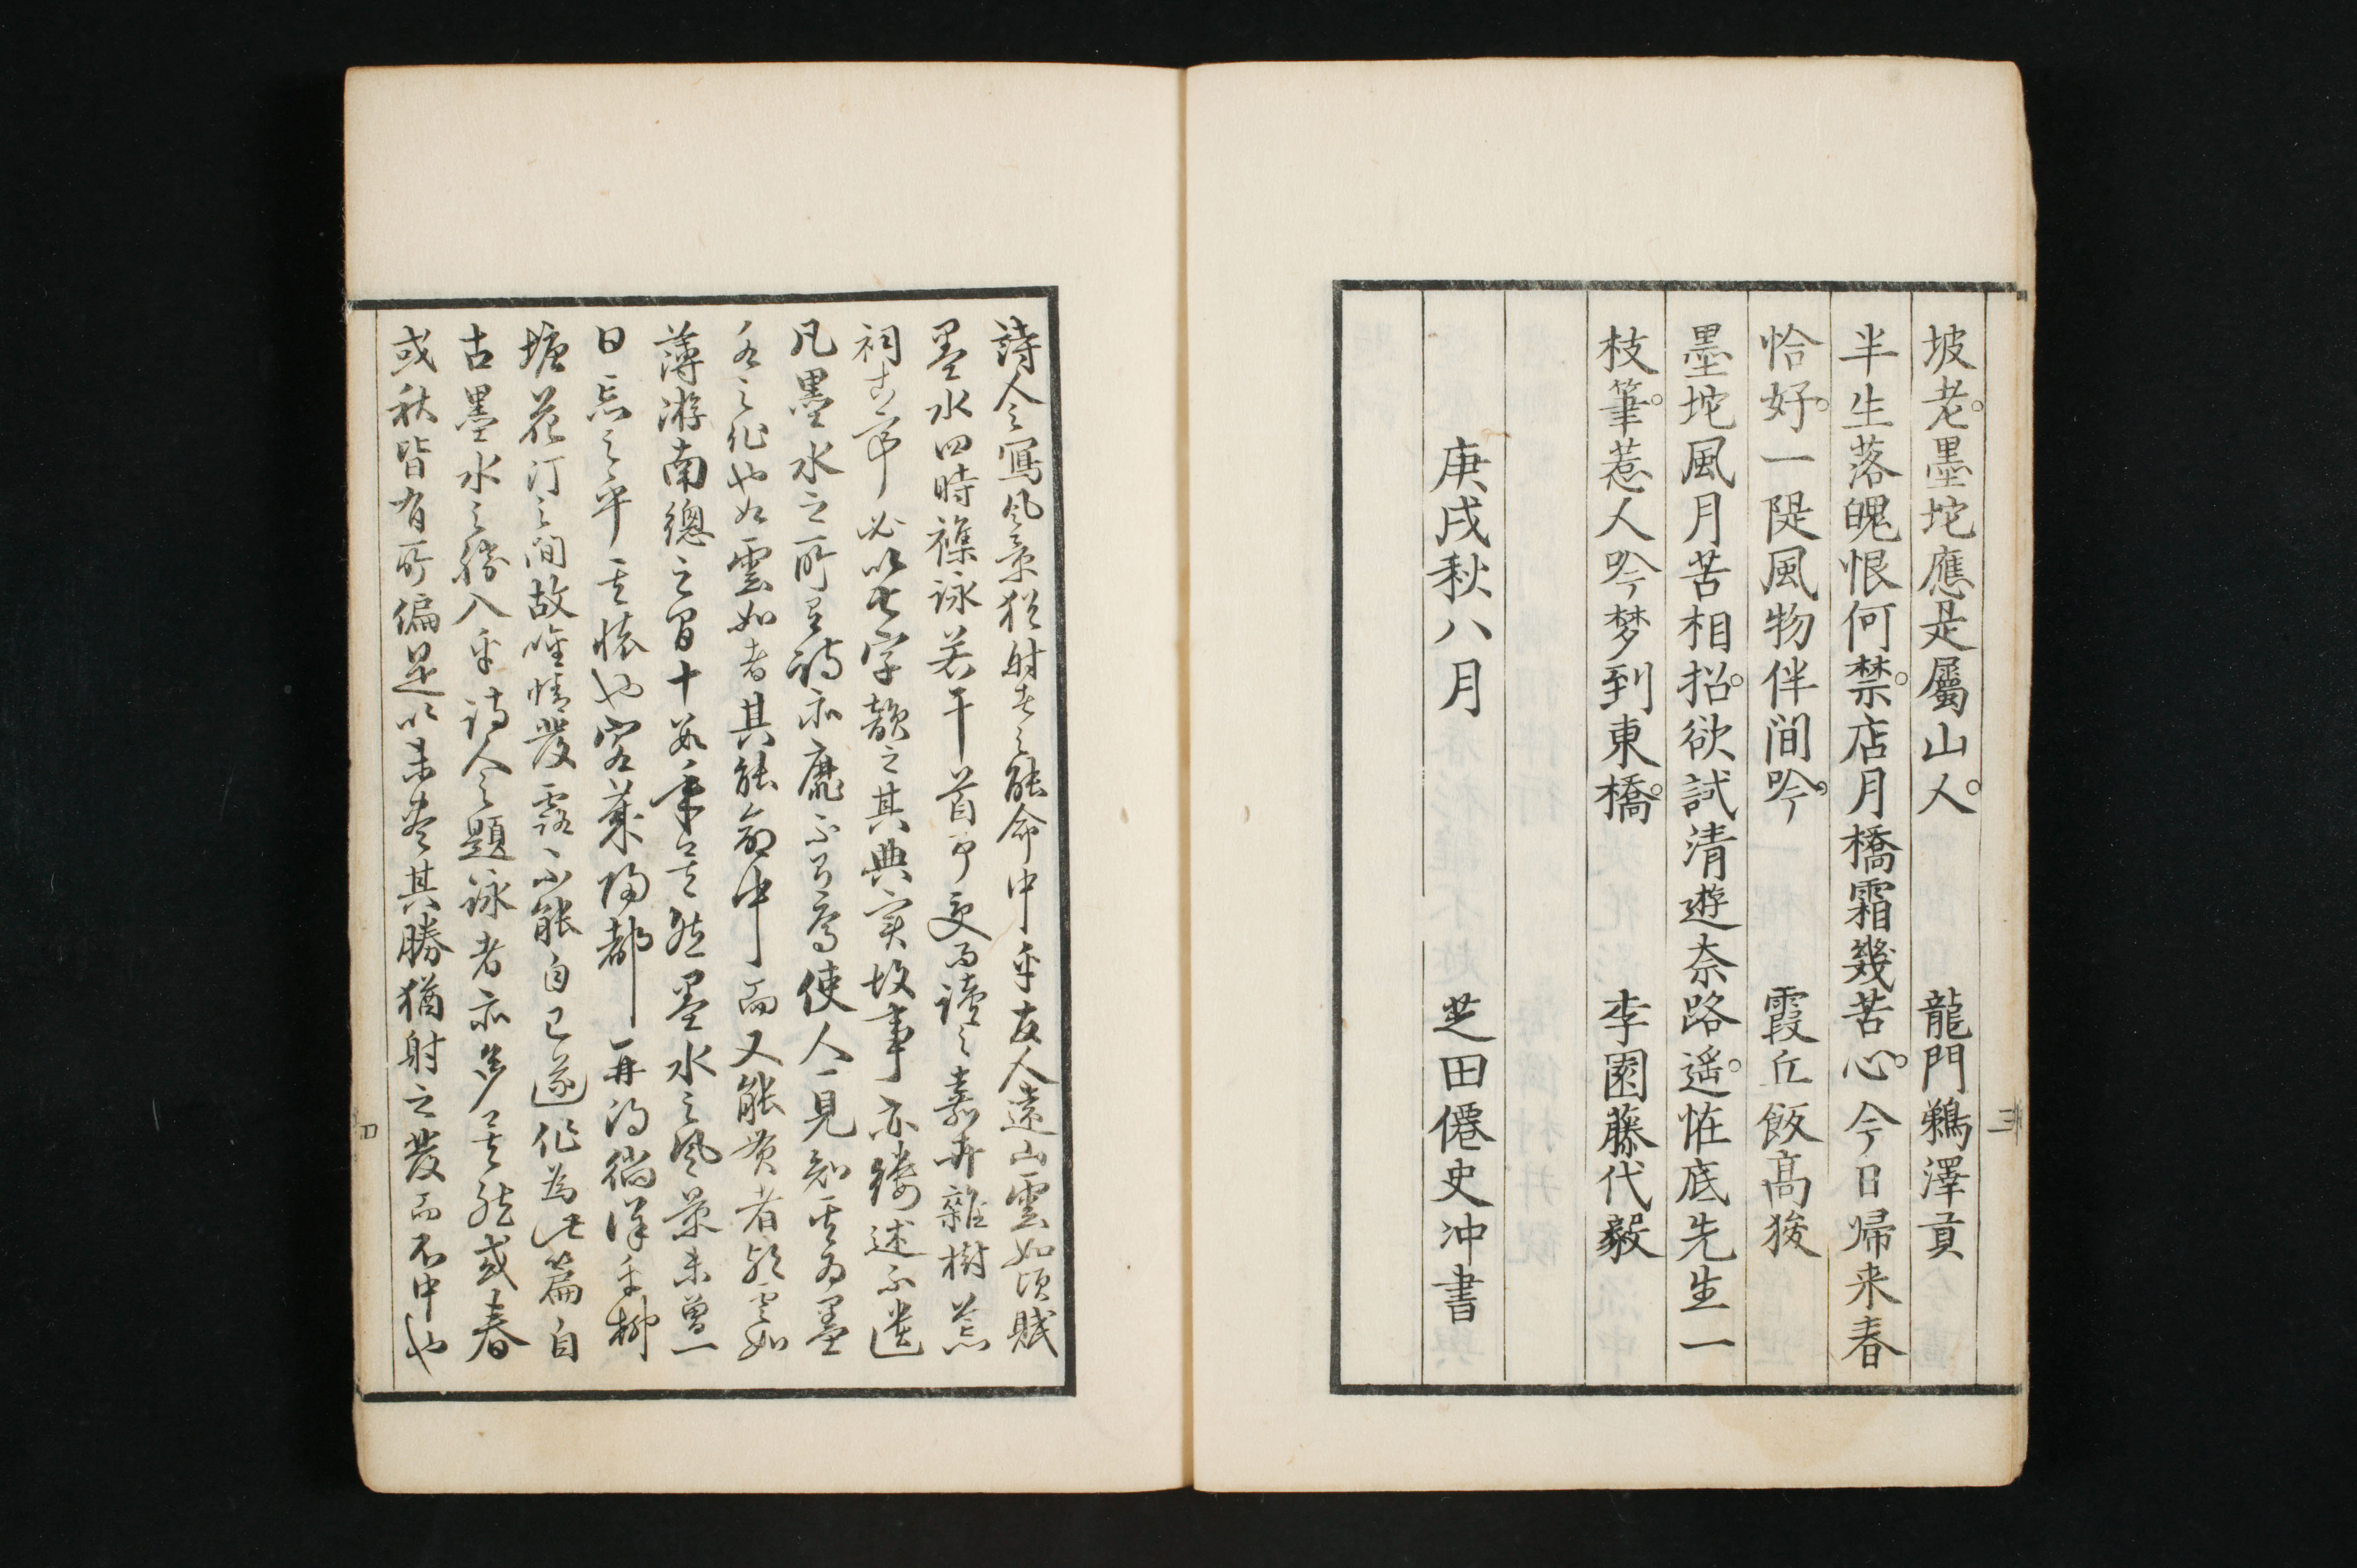 坡老墨坨應是屬山人 龍門鵜澤貢
半生落魄恨何禁店月橋霜幾苦心今日帰来春
恰好一隄風物伴間吟 霞丘飯髙狻
墨坨風月苦相招欲試清遊奈路遥恠底先生一
枝筆惹人吟梦到東橋 李園藤代毅
庚戌秋八月 芝田僊史冲書
三
詩人之寫風景猶射者之能命中乎友人遠山雲如頃賦
墨水四時襍詠若干首予受而讀之嘉卉雜樹荒
祠古寺必以字韻之其典実故事亦縷述不遺
凡墨水之所有詩亦靡不有焉使人一見知其為墨
水之作也如雲如者其能命中而又能貫者欤雲如
薄游南總之間十数年矣然墨水之風景未曽一
日忘之乎其懐也客歳帰都再得徜徉乎柳
塘花汀之間故唫情發露不能自已遂作為此篇自
古墨水之勝入乎詩人之題詠者亦多矣然或春
或秋皆有所偏是以未盡其勝猶射之發而不中也
四